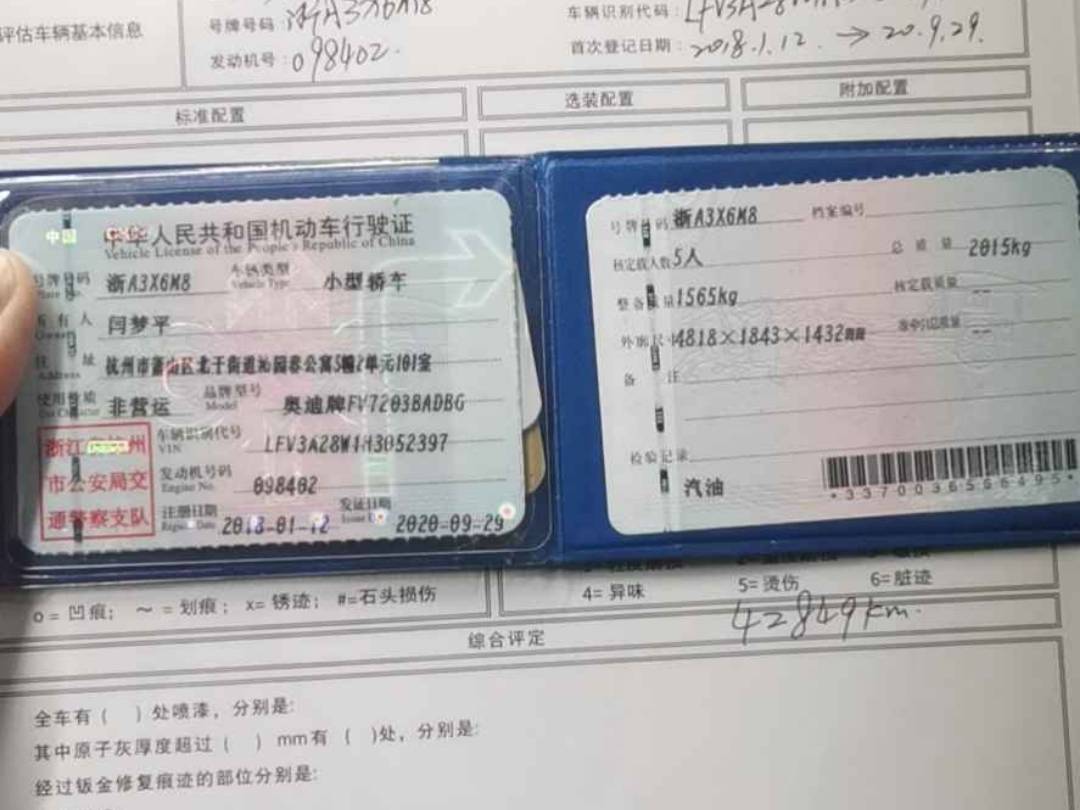 评估车辆基本信息
号牌号码：浙A3X6M8
车辆识别代码：
发动机号：098402
首次登记日期：2018.1.12. → 20.9.29.
标准配置
选装配置
附加配置
中华人民共和国机动车行驶证
Vehicle License of the People's Republic of China
号牌号码 浙A3X6M8 车辆类型 小型轿车
Vehicle Type
所有人 闫梦平
住址 杭州市萧山区北干街道沁园春公寓5幢2单元101室
Address
使用性质 非营运 品牌型号 奥迪牌FV7203BADBG
Use Character Model
浙江省杭州
市公安局交
通警察支队
车辆识别代号 LFV3A28W1H3052397
VIN
发动机号码 098402
Engine No.
注册日期 2018-01-12 发证日期 2020-09-29
Register Date Issue Date
号牌号码 浙A3X6M8 档案编号
核定载人数 5人 总质量 2015kg
整备质量 1565kg 核定载质量 --
外廓尺寸 4818×1843×1432mm 准牵引总质量 --
备注
检验记录
汽油
4= 异味 5= 烫伤 6= 脏迹
o = 凹痕； ～ = 划痕； x= 锈迹； #=石头损伤
42849km.
综合评定
全车有（ ）处喷漆，分别是:
其中原子灰厚度超过（ ）mm有（ )处，分别是:
经过钣金修复痕迹的部位分别是: